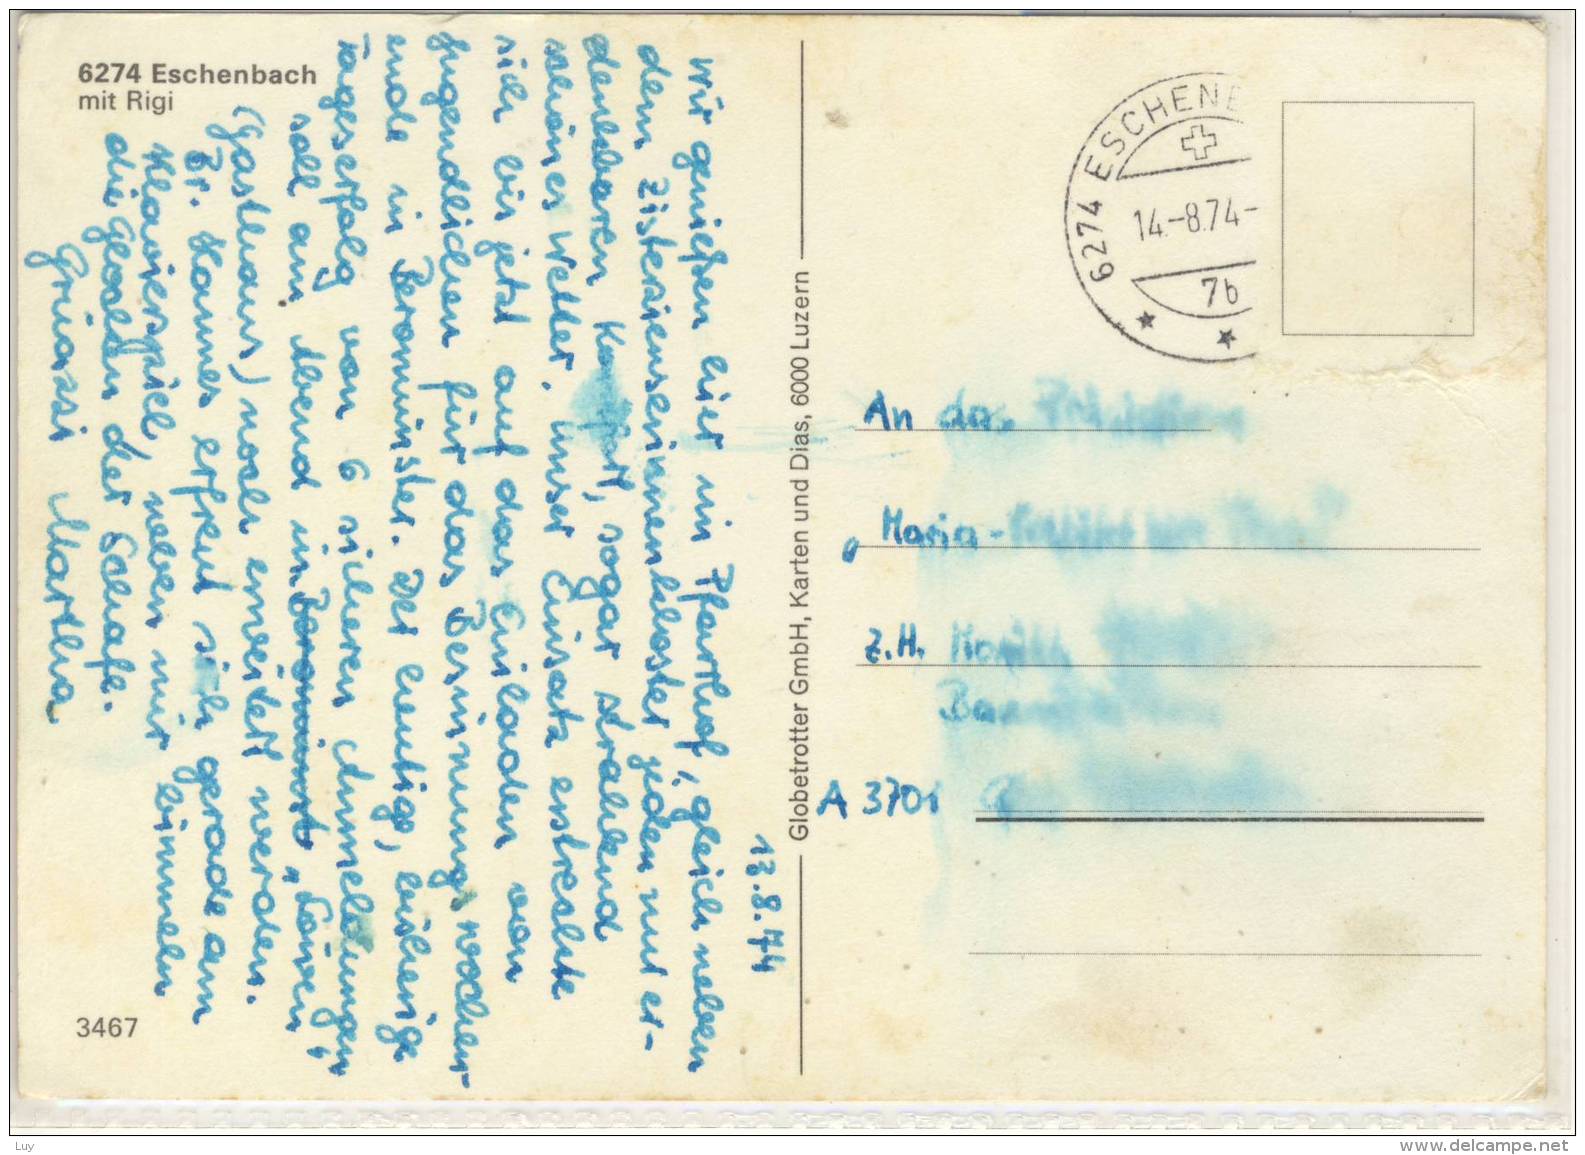 6274 Eschenbach
mit Rigi
13.8.74
Wir genießen hier im Pfarrhof, gleich neben
dem Zisterzienserinnenkloster jeden nur er-
denkbaren Komfort, sogar strahlend
schönes Wetter. Unser Einsatz erstreckte
sich bis jetzt auf das Einladen von
Jugendlichen für das Besinnungswochen-
ende in Beromünster. Der heutige, bisherige
Tageserfolg von 6 sicheren Anmeldungen
soll am Abend in Beromünst „Löwen"
(Gasthaus) noch erweitert werden.
Br. Hannes erfreut sich gerade am
Klavierspiel, neben mir bimmeln
die Glocken der Schafe.
Grüazzi Martha
3467
Globetrotter GmbH, Karten und Dias, 6000 Luzern
6274 ESCHENB
14.-8.74-
7b
An das
„Maria-
z.H.
A 3701
Luy
www.delcampe.net